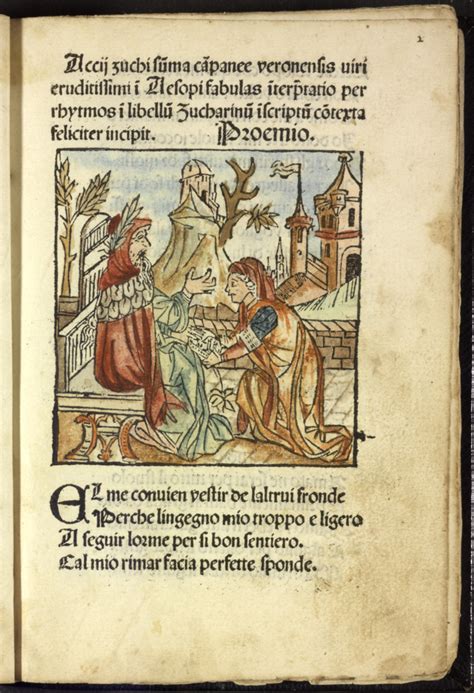 2
Accij zuchi sūma cāpanee veronensis viri
eruditissimi ī Aesopi fabulas īterp̄tatio per
rhytmos ī libellū Zucharinū īscriptū cōtexta
feliciter incipit. Proemio.
EL me convien vestir de laltrui fronde
Perche lingegno mio troppo e ligero
A seguir lorme per si bon sentiero.
Cal mio rimar facia perfette sponde.